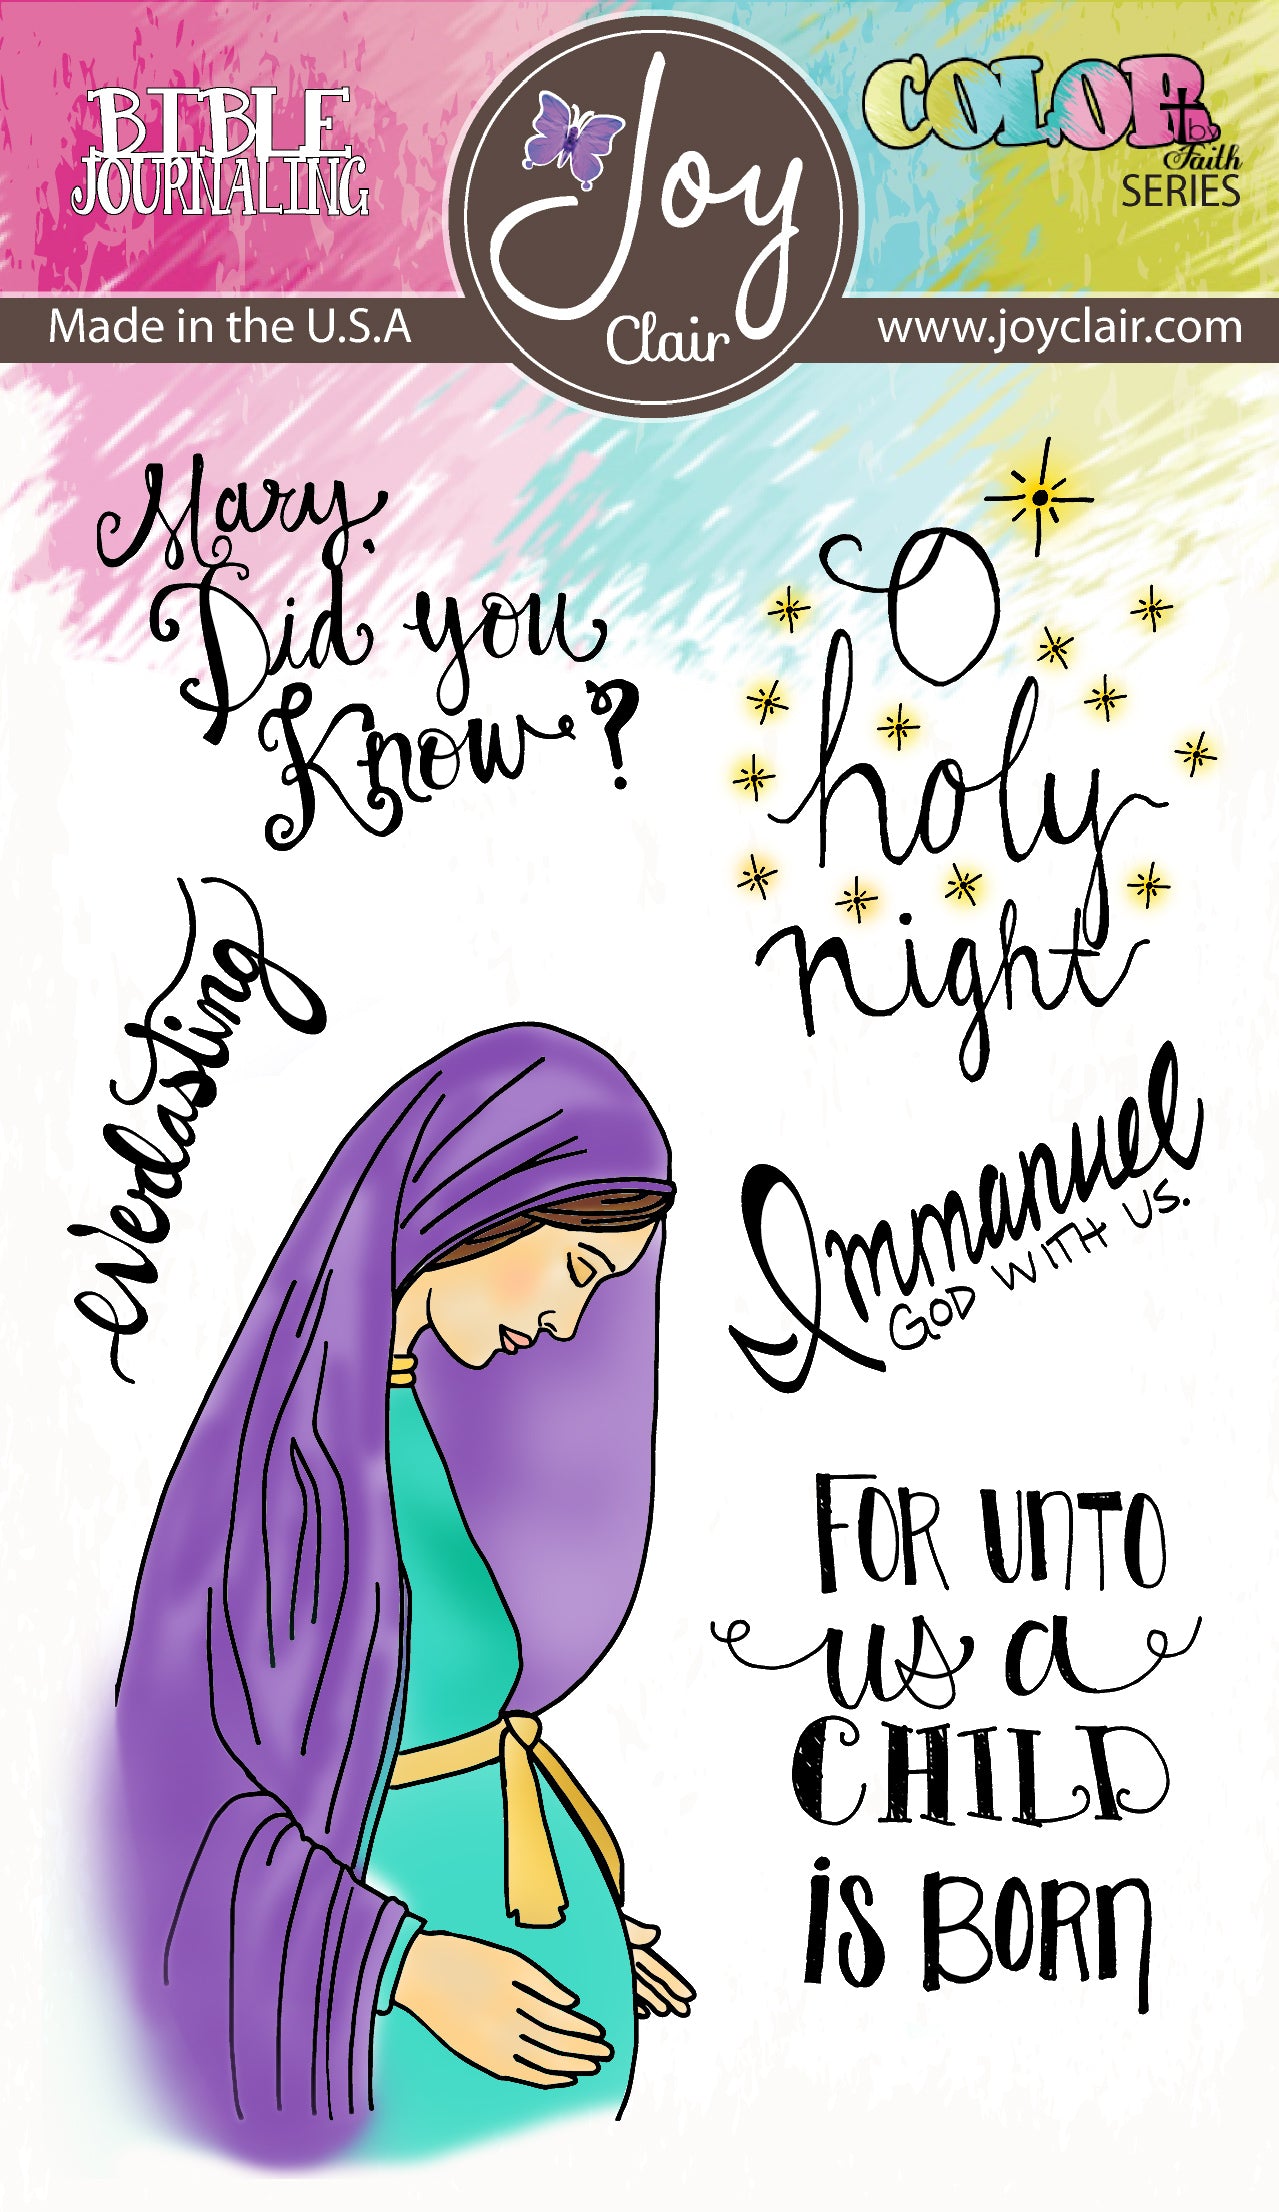 BIBLE
JOURNALING
Joy
Clair
COLOR
by
Faith
SERIES
Made in the U.S.A
www.joyclair.com
Mary,
Did you
Know?
O
holy
night
everlasting
Immanuel
GOD WITH US.
FOR UNTO
us a
CHILD
is BORN